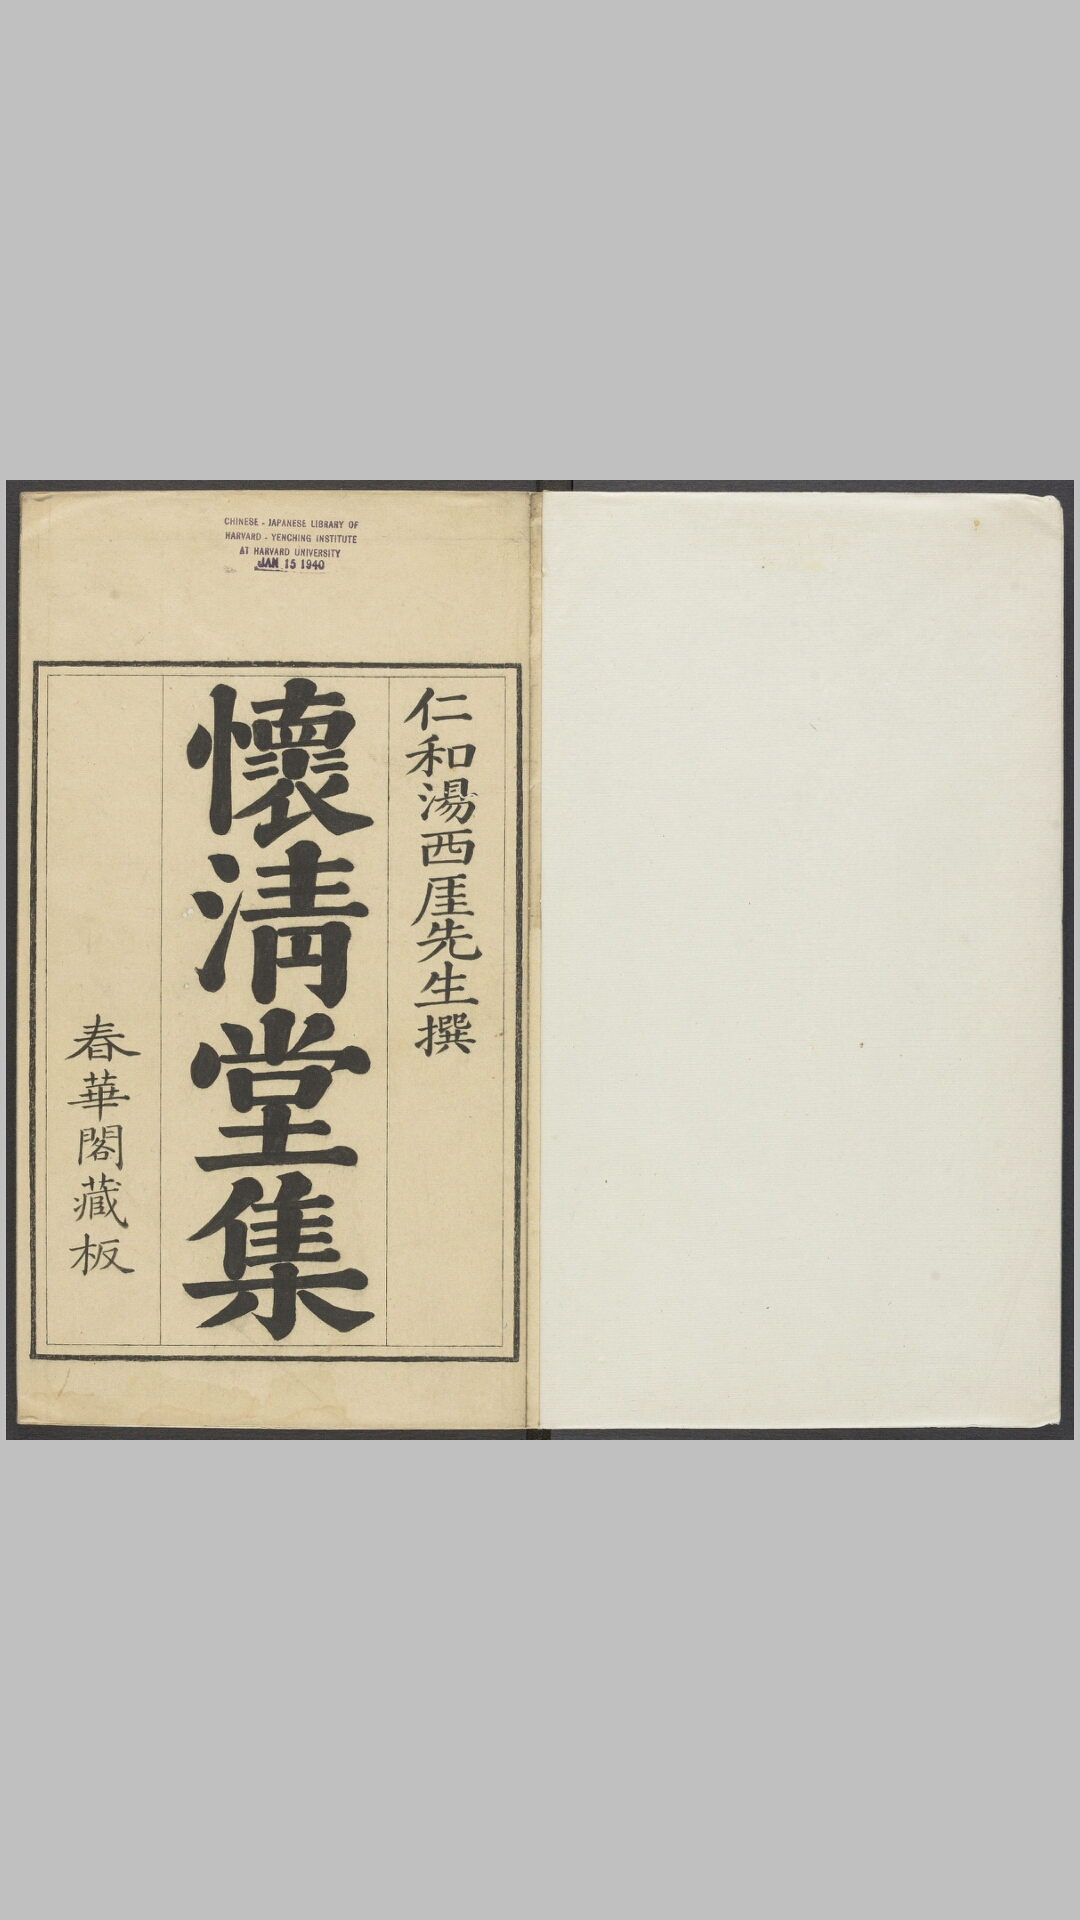 CHINESE - JAPANESE LIBRARY OF
HARVARD - YENCHING INSTITUTE
AT HARVARD UNIVERSITY
JAN 15 1940
仁和湯西厓先生撰
懷清堂集
春華閣藏板